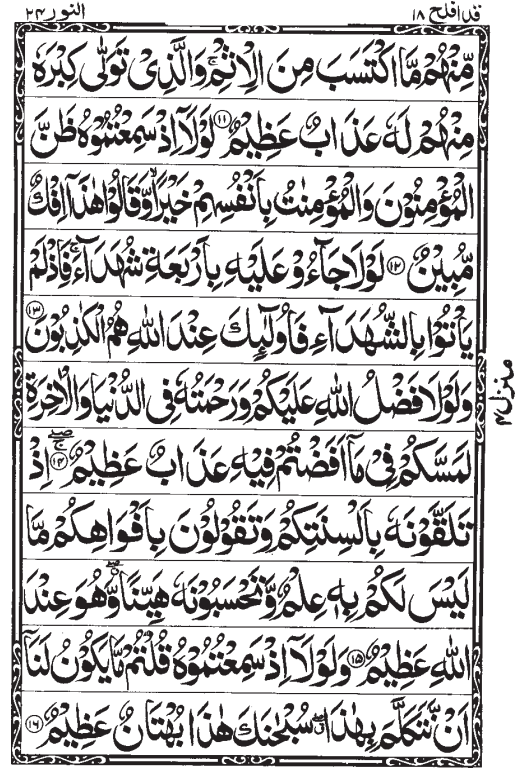 قد افلح ١٨
النور ٢٤
مِّنْهُمْ مَّا اكْتَسَبَ مِنَ الْاِثْمِ ۚ وَالَّذِیْ تَوَلّٰی كِبْرَهٗ
مِنْهُمْ لَهٗ عَذَابٌ عَظِیْمٌ ﴿۱۱﴾ لَوْلَاۤ اِذْ سَمِعْتُمُوْهُ ظَنَّ
الْمُؤْمِنُوْنَ وَالْمُؤْمِنٰتُ بِاَنْفُسِهِمْ خَیْرًا ۙ وَّقَالُوْا هٰذَاۤ اِفْكٌ
مُّبِیْنٌ ﴿۱۲﴾ لَوْلَا جَآءُوْ عَلَیْهِ بِاَرْبَعَةِ شُهَدَآءَ ۚ فَاِذْ لَمْ
یَاْتُوْا بِالشُّهَدَآءِ فَاُولٰٓئِكَ عِنْدَ اللّٰهِ هُمُ الْكٰذِبُوْنَ ﴿۱۳﴾
وَلَوْلَا فَضْلُ اللّٰهِ عَلَیْكُمْ وَرَحْمَتُهٗ فِی الدُّنْیَا وَالْاٰخِرَةِ
لَمَسَّكُمْ فِیْ مَاۤ اَفَضْتُمْ فِیْهِ عَذَابٌ عَظِیْمٌ ﴿۱۴﴾ اِذْ
تَلَقَّوْنَهٗ بِاَلْسِنَتِكُمْ وَتَقُوْلُوْنَ بِاَفْوَاهِكُمْ مَّا
لَیْسَ لَكُمْ بِهٖ عِلْمٌ وَّتَحْسَبُوْنَهٗ هَیِّنًا ۖ وَّهُوَ عِنْدَ
اللّٰهِ عَظِیْمٌ ﴿۱۵﴾ وَلَوْلَاۤ اِذْ سَمِعْتُمُوْهُ قُلْتُمْ مَّا یَكُوْنُ لَنَاۤ
اَنْ نَّتَكَلَّمَ بِهٰذَا ۖ سُبْحٰنَكَ هٰذَا بُهْتَانٌ عَظِیْمٌ ﴿۱۶﴾
منزل ۴